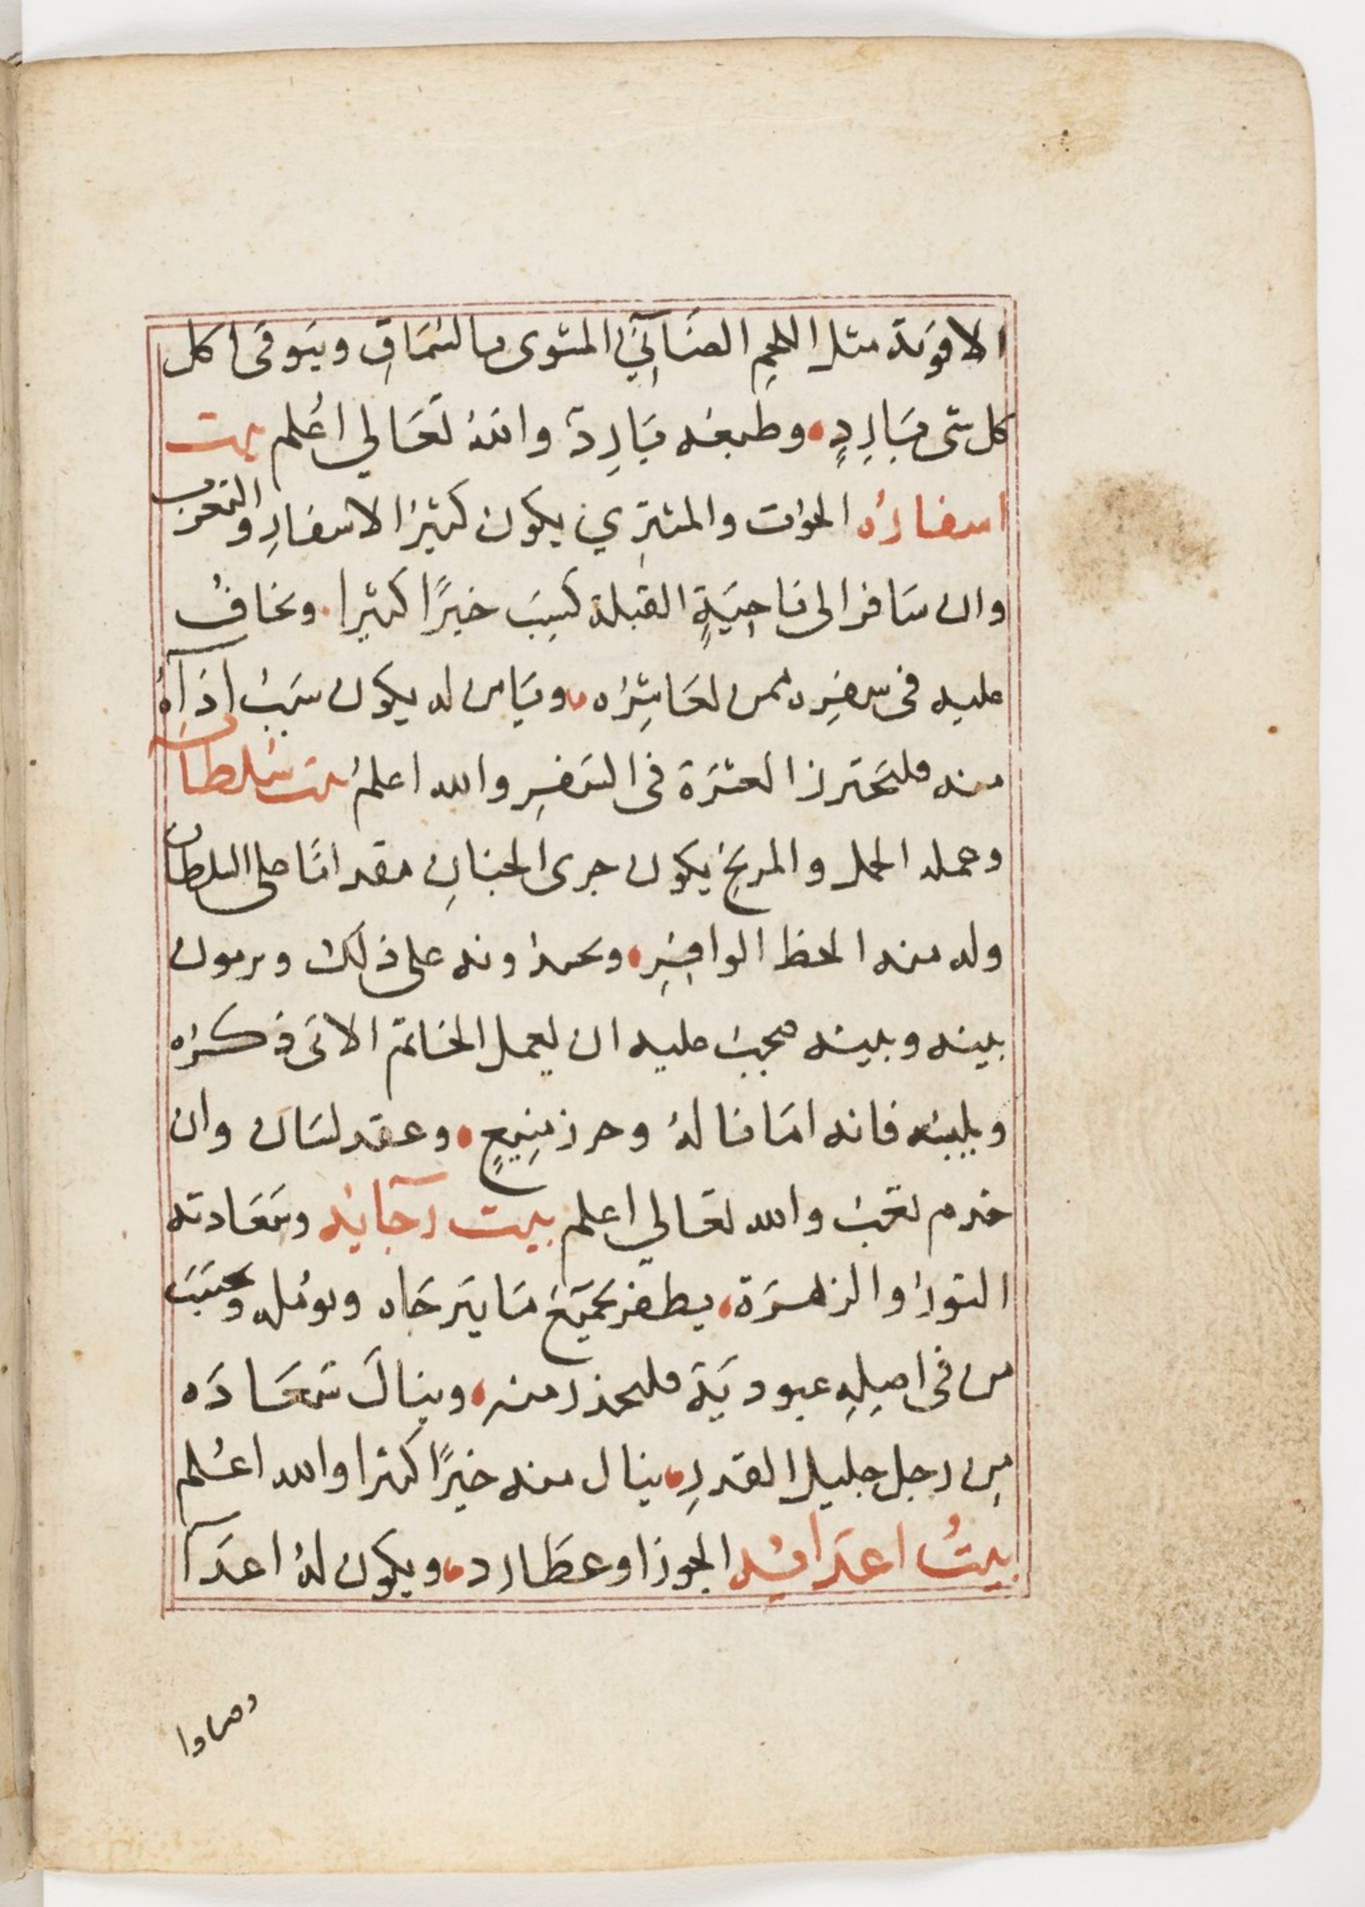 الاقوية مثل اللحم الضَانِي المشوى بالسُمَاقِ ويَتوقى اكل
كل شى بَارِدٍ وطبعه بَارِدَة واللهُ تَعَالي اعْلم بيت
اسفارهُ الحوت والمشتري يكون كثيرُ الاسفارِ والتغرب
وان سَافر الى نَاحِيَةٍ القبلة كَسِبَ خيرًا كثيرا ويخافُ
عليه فى سفرِه ممن يُعَاشِرُه ويَانس له يكون سَبَبُ اذآهُ
منه فليحَترز العشرَة فى السَفرِ والله اعلمُ بيت سُلطانه
وعمله الحمل والمريخ يكون جرى الجنانِ مقدامًا على السلطان
وله منه الحظ الوافِرِ ويحسدونه على ذلك ويرمون
بينه وبينه فيجبُ عليه ان يعمل الخاتم الاتى ذكرُه
ويلبسُه فانه امَانا لهُ وحرز مَنِيعٍ وعقد لسَان وان
خدم تعبُ والله تعَالي اعلم بيت رجَايُه وسَعَادته
الثورُ والزهرَة يظفر بجميْع مَا يَترجَاه ويومله وتجنبَ
من فى اصلِهِ عبوديَة فليحذر منه وينالَ سَعَادَه
مِن رجل جليل القدرِ ينال منه خيرًا كثيرا والله اعْلم
بيتُ اعدَايُه الجوزا وعطَارد ويكون لهُ اعدَآ